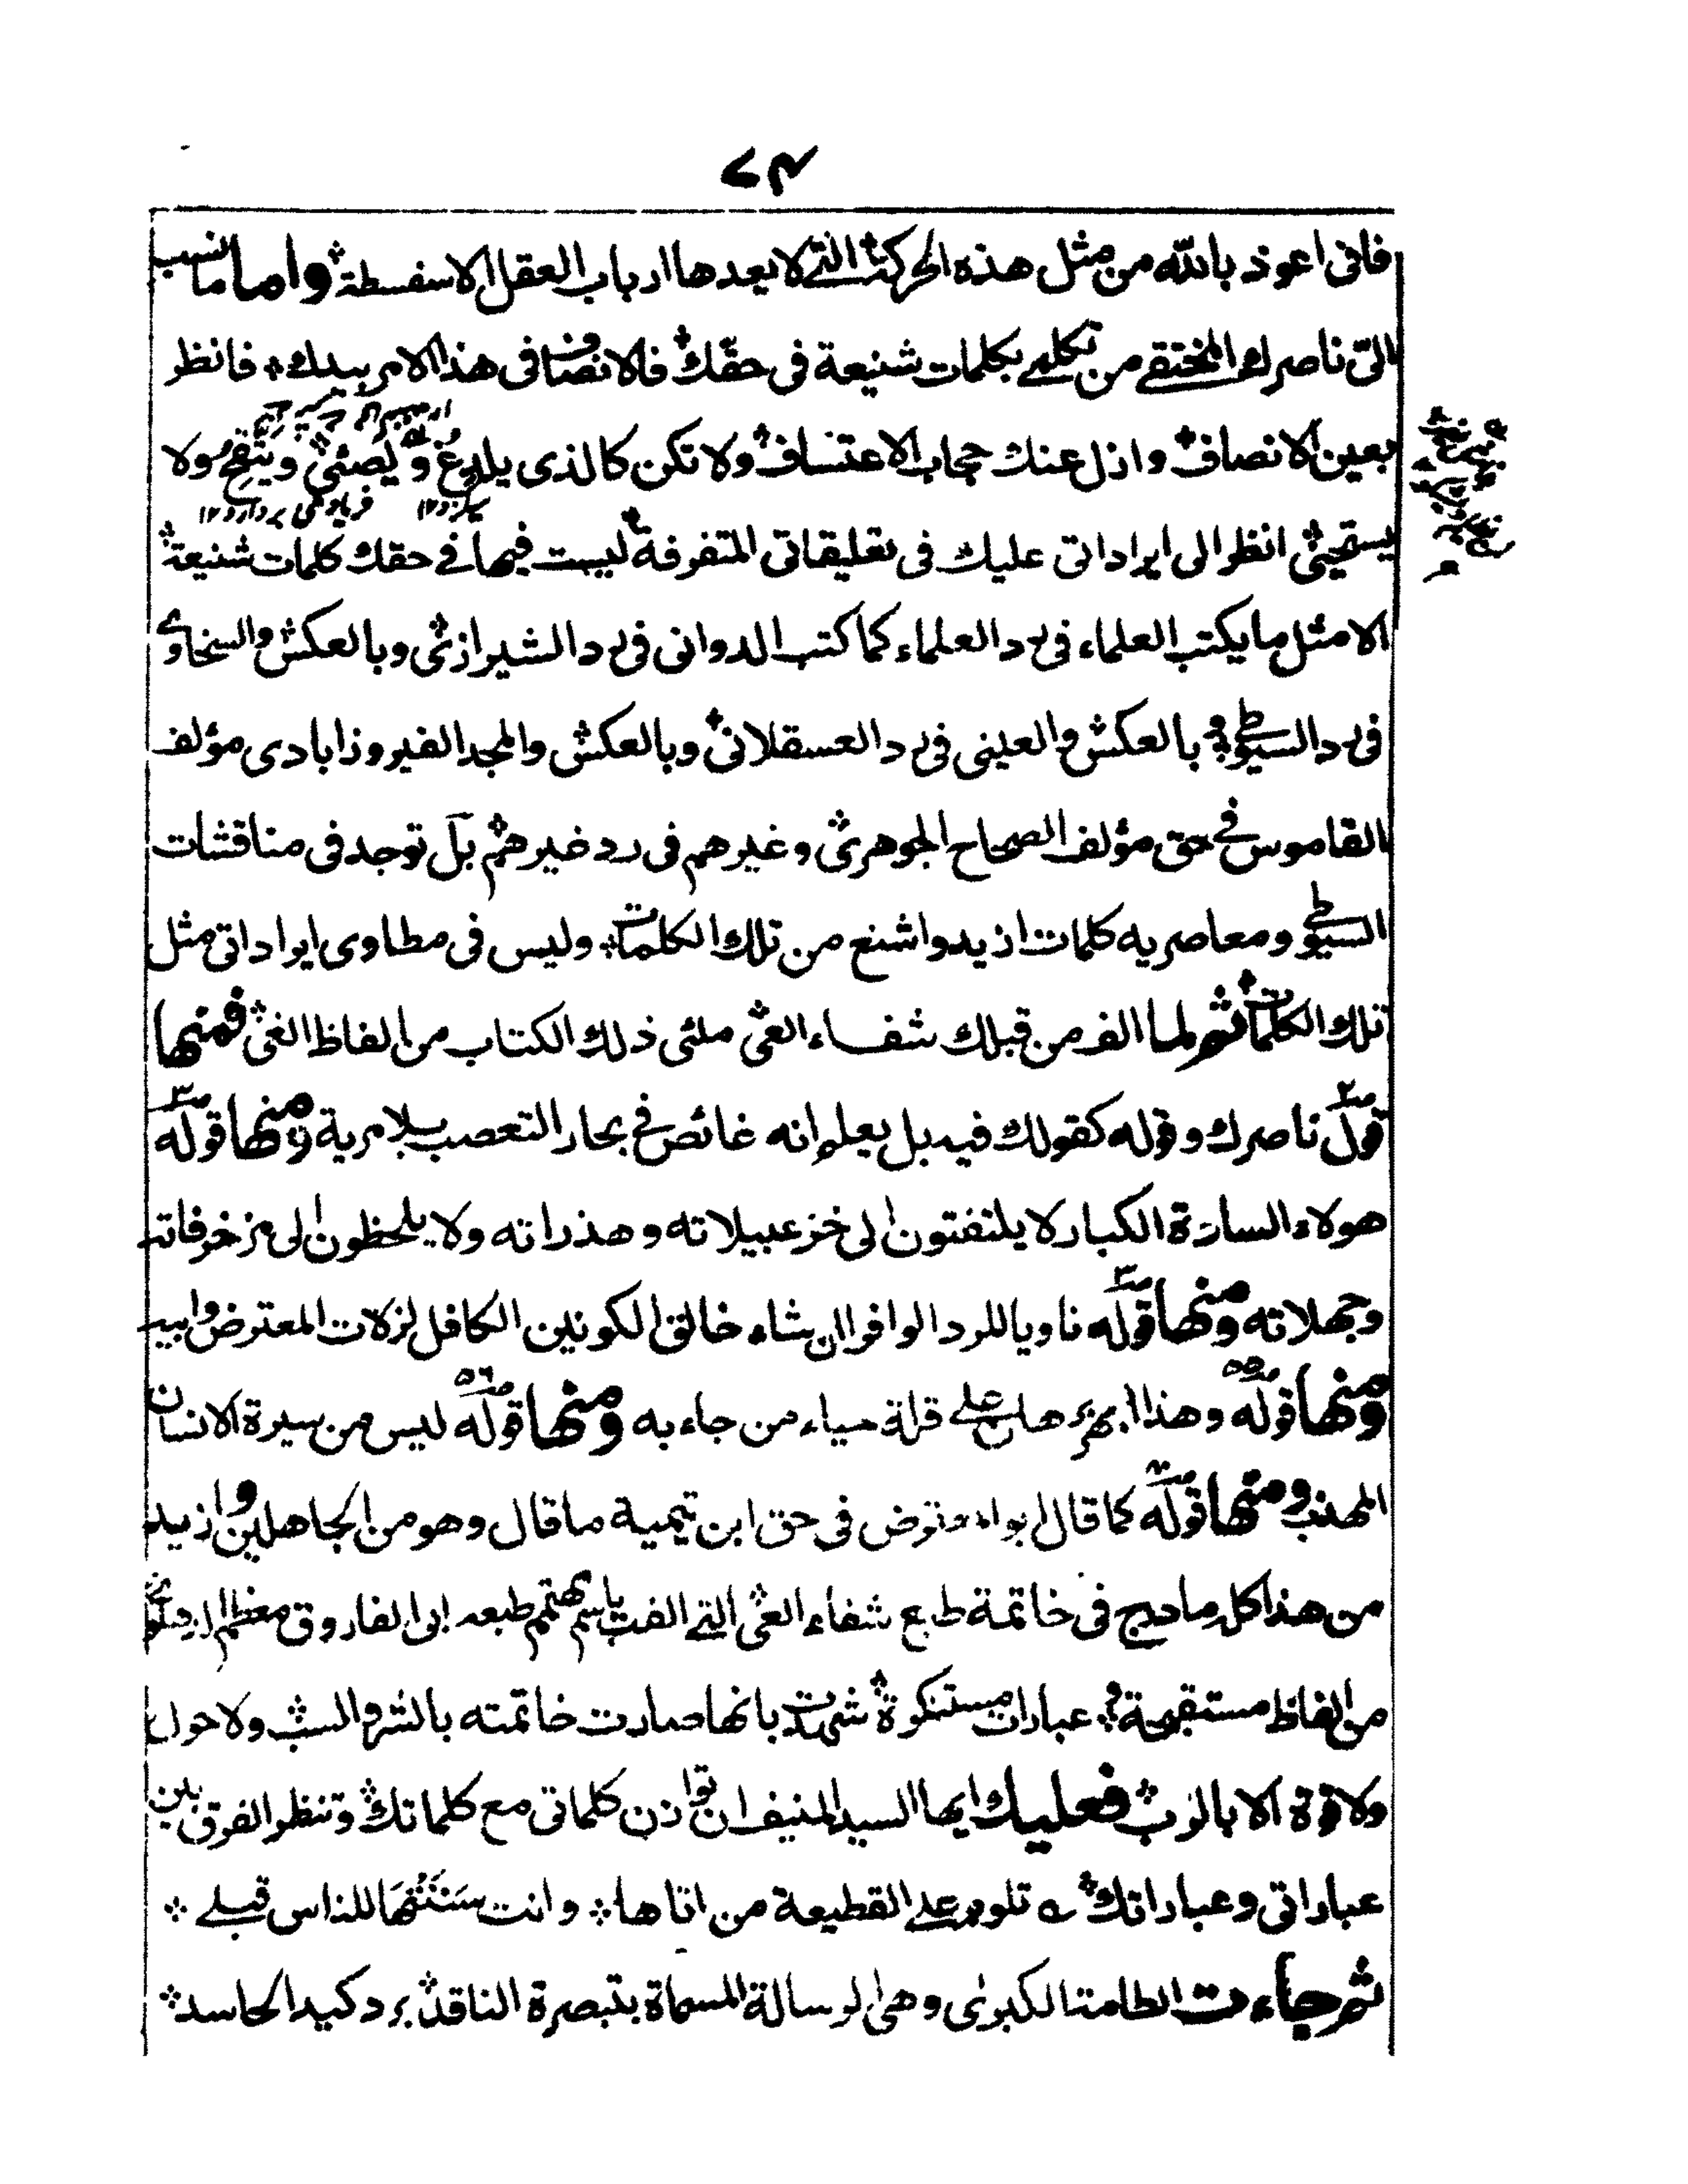 ٧٤
فانى اعوذ بالله من مثل هذه الحركة التى لا يعدها ارباب العقل الا سفسطة واما ما نسب
الى ناصرك المختفى من تكلمى بكلمات شنيعة فى حقك فالانصاف فى هذا الامر بيدك فانظر
بعين الانصاف وازل عنك حجاب الاعتساف ولا تكن كالذى يلدغ ويصئى ويتقح ولا
يستحيى انظر الى ايراداتى عليك فى تعليقاتى المتفرقة ليست فيها فى حقك كلمات شنيعة
الا مثل ما يكتب العلماء فى رد العلماء كما كتب الدوانى فى رد الشيرازى وبالعكس والسخاوى
فى رد السيوطى وبالعكس والعينى فى رد العسقلانى وبالعكس والمجد الفيروزابادى مؤلف
القاموس فى حق مؤلف الصحاح الجوهرى وغيرهم فى رد غيرهم بل توجد فى مناقشات
السيوطى ومعاصريه كلمات ازيد واشنع من تلك الكلمات وليس فى مطاوى ايراداتى مثل
تلك الكلمات ثم لما الف من قبلك شفاء العى ملئى ذلك الكتاب من الفاظ الغى فمنها
قول ناصرك وقوله كقولك فيه بل يعلم انه غائص فى بحار التعصب بلا مرية ومنها قوله
هولاء السادة الكبار لا يلتفتون الى خزعبيلاته وهذراته ولا يلحظون الى مزخرفاته
وجهلاته ومنها قوله ناويا للرد الوافر ان شاء خالق الكونين الكافل لزلات المعترض وابيه
ومنها قوله وهذا ابهر برهان على قلة حياء من جاء به ومنها قوله ليس من سيرة الانسان
المهذب ومنها قوله كما قال ابو المعترض فى حق ابن تيمية ما قال وهو من الجاهلين وازيد
من هذا كل ما درج فى خاتمة طبع شفاء العى التى الفت باسم مهتمم طبعه ابى الفاروق معظم
من الفاظ مستقبحة وعبارات مستنكرة شهدت بانها صارت خاتمته بالشر والسب ولا حول
ولا قوة الا بالرب فعليك ايها السيد المنيف ان توازن كلماتى مع كلماتك وتنظر الفرق بين
عباراتى وعباراتك ے تلوم على القطيعة من اتاها وانت سننتها للناس قبلى
ثم جاءت الطامة الكبرى وهى الرسالة المسماة بتبصرة الناقد برد كيد الحاسد